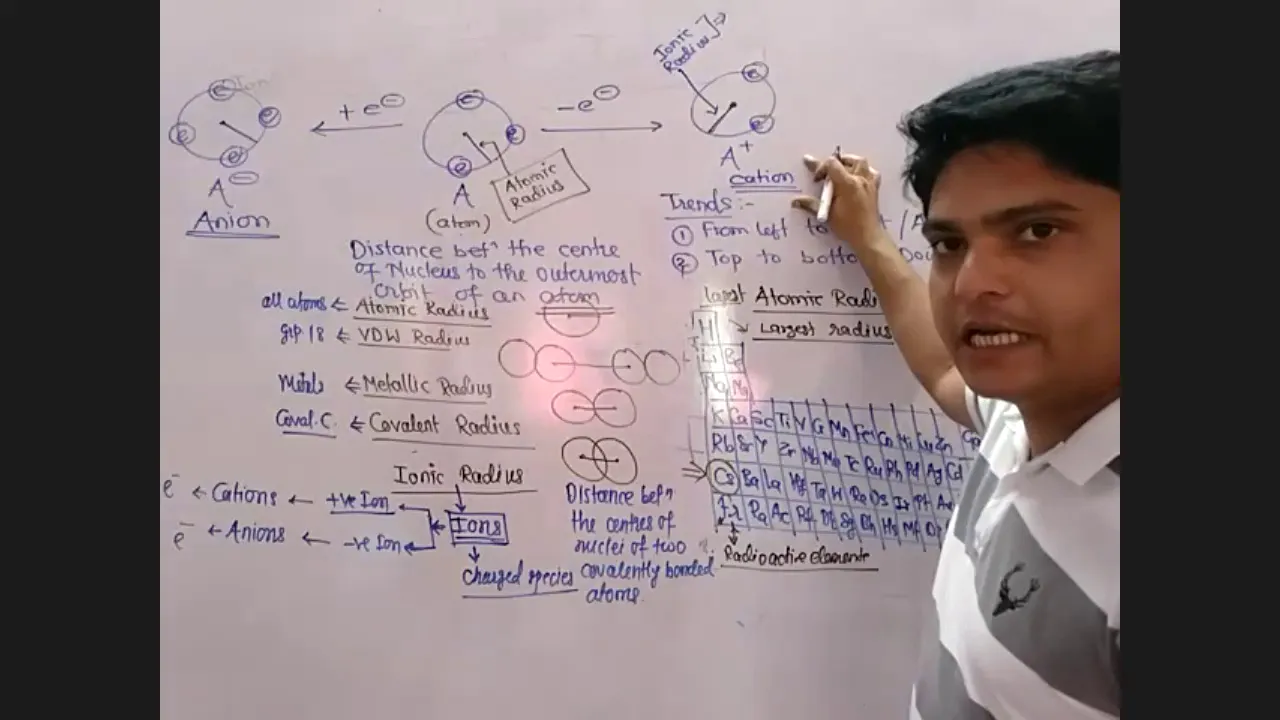 Ionic Radius
e e e e
+ e⊖
e e e
- e⊖
e e
A⊖
Anion
A
(atom)
Atomic Radius
A+
cation
Trends :-
① From left to
② Top to bottom
Distance betn the centre
of Nucleus to the outermost
orbit of an atom
all atoms ← Atomic Radius
grp 18 ← VDW Radius
Metals ← Metallic Radius
Coval. C. ← Covalent Radius
Ionic Radius
e- ← Cations ← +ve Ion
Ions
e- ← Anions ← -ve Ion
Charged species
Distance betn
the centres of
nuclei of two
covalently bonded
atoms.
Largest Atomic Radi
H Largest radius
Li Be
Na Mg
K Ca Sc Ti V Cr Mn Fe Co Ni Cu Zn Ga
Rb Sr Y Zr Nb Mo Tc Ru Rh Pd Ag Cd
Cs Ba La Hf Ta W Re Os Ir Pt Au
Fr Ra Ac Rf Db Sg Bh Hs Mt Ds
Radioactive elements